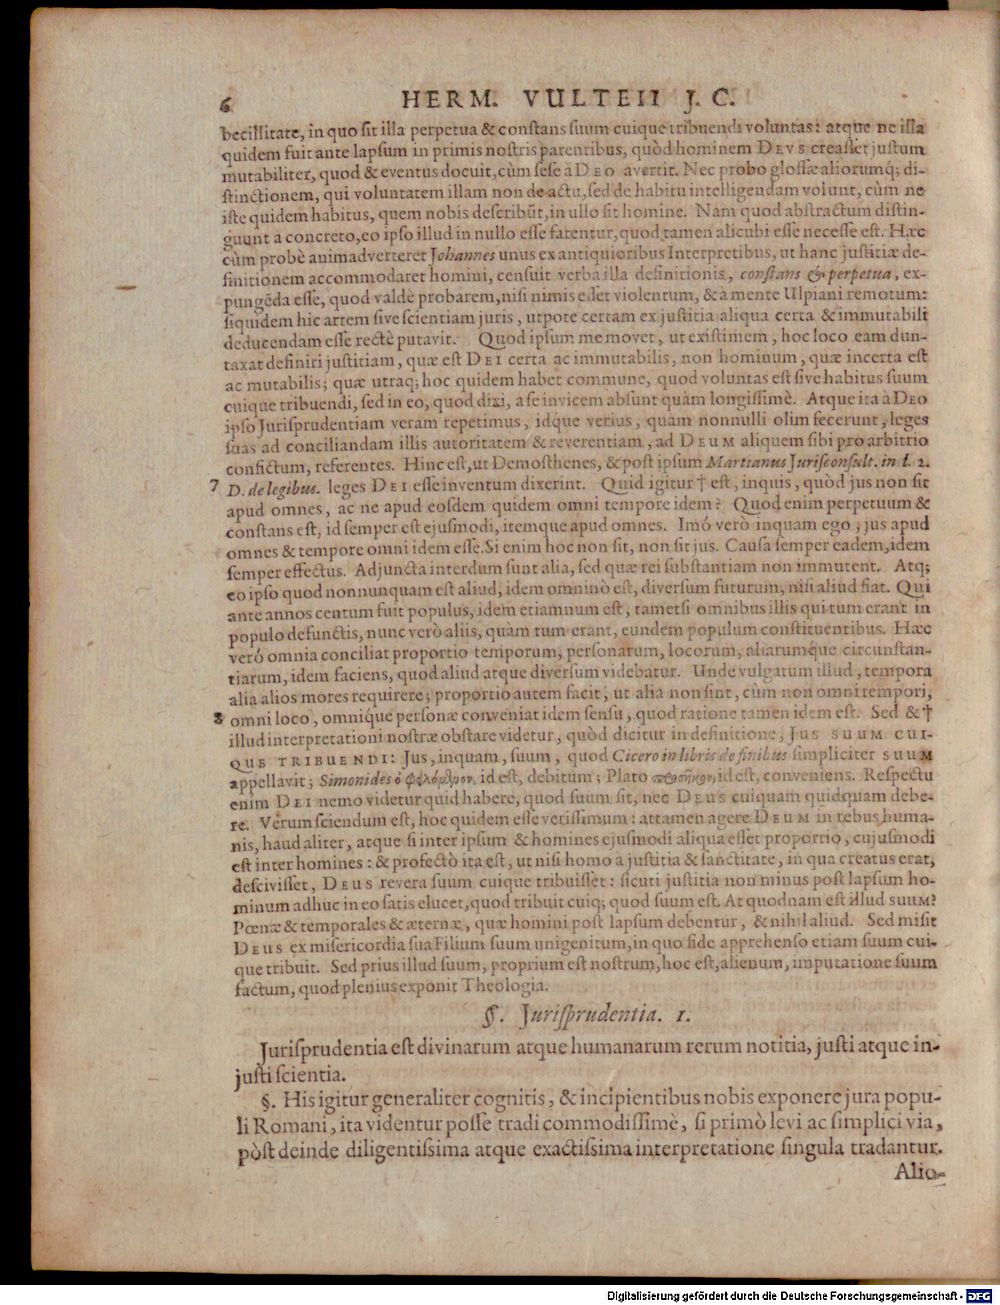 6 HERM. VULTEII J. C.
becillitate, in quo sit illa perpetua & constans suum cuique tribuendi voluntas: atque ne illa
quidem fuit ante lapsum in primis nostris parentibus, quòd hominem DEVS creasset justum
mutabiliter, quod & eventus docuit, cùm sese à DEO avertit. Nec probo glossæ aliorumq́; di-
stinctionem, qui voluntatem illam non de actu, sed de habitu intelligendam volunt, cùm ne
iste quidem habitus, quem nobis describūt, in ullo sit homine. Nam quod abstractum distin-
guunt à concreto, eo ipso illud in nullo esse fatentur, quod tamen alicubi esse necesse est. Hæc
cùm probè animadverteret Johannes unus ex antiquioribus Interpretibus, ut hanc justitiæ de-
finitionem accommodaret homini, censuit verba illa definitionis, constans & perpetua, ex-
pungēda esse, quod valdè probarem, nisi nimis esset violentum, & à mente Ulpiani remotum:
siquidem hic artem sive scientiam juris, utpote certam ex justitia aliqua certa & immutabili
deducendam esse rectè putavit. Quod ipsum me movet, ut existimem, hoc loco eam dun-
taxat definiri justitiam, quæ est DEI certa ac immutabilis, non hominum, quæ incerta est
ac mutabilis; quæ utraq; hoc quidem habet commune, quod voluntas est sive habitus suum
cuique tribuendi, sed in eo, quod dixi, a se invicem absunt quàm longissimè. Atque ita à DEO
ipso Jurisprudentiam veram repetimus, idq́ue verius, quàm nonnulli olim fecerunt, leges
suas ad conciliandam illis autoritatem & reverentiam, ad DEUM aliquem sibi pro arbitrio
confictum, referentes. Hinc est, ut Demosthenes, & post ipsum Martianus Jurisconsult. in l. 2.
7 D. de legibus. leges DEI esse inventum dixerint. Quid igitur † est, inquis, quòd jus non sit
apud omnes, ac ne apud eosdem quidem omni tempore idem? Quod enim perpetuum &
constans est, id semper est ejusmodi, itemque apud omnes. Imó verò inquam ego, jus apud
omnes & tempore omni idem esse. Si enim hoc non sit, non sit jus. Causa semper eadem, idem
semper effectus. Adjuncta interdum sunt alia, sed quæ rei substantiam non immutent. Atq;
eo ipso quod nonnunquam est aliud, idem omninò est, diversum futurum, nisi aliud fiat. Qui
ante annos centum fuit populus, idem etiamnum est, tametsi omnibus illis qui tum erant in
populo defunctis, nunc verò aliis, quàm tum erant, eundem populum constituentibus. Hæc
veró omnia conciliat proportio temporum, personarum, locorum, aliarumq́ue circunstan-
tiarum, idem faciens, quod aliud atque diversum videbatur. Unde vulgatum illud, tempora
alia alios mores requirere; proportio autem facit, ut alia non sint, cùm non omni tempori,
8 omni loco, omniq́ue personæ conveniat idem sensu, quod ratione tamen idem est. Sed & †
illud interpretationi nostræ obstare videtur, quòd dicitur in definitione, JUS SUUM CUI-
QUE TRIBUENDI: Jus, inquam, suum, quod Cicero in libris de finibus simpliciter SUUM
appellavit; Simonides id est, debitum; Plato id est, conveniens. Respectu
enim DEI nemo videtur quid habere, quod suum sit, nec DEUS cuiquam quidquam debe-
re. Vérum sciendum est, hoc quidem esse verissimum: attamen agere DEUM in rebus huma-
nis, haud aliter, atque si inter ipsum & homines ejusmodi aliqua esset proportio, cujusmodi
est inter homines: & profectò ita est, ut nisi homo à justitia & sanctitate, in qua creatus erat,
descivisset, DEUS revera suum cuique tribuisset: sicuti justitia non minus post lapsum ho-
minum adhuc in eo satis elucet, quod tribuit cuiq; quod suum est. At quodnam est illud suum?
Pœnæ & temporales & æternæ, quæ homini post lapsum debentur, & nihil aliud. Sed misit
DEUS ex misericordia sua Filium suum unigenitum, in quo fide apprehenso etiam suum cui-
que tribuit. Sed prius illud suum, proprium est nostrum, hoc est, alienum, imputatione suum
factum, quod plenius exponit Theologia.
§. Jurisprudentia. 1.
Jurisprudentia est divinarum atque humanarum rerum notitia, justi atque in-
justi scientia.
§. His igitur generaliter cognitis, & incipientibus nobis exponere jura popu-
li Romani, ita videntur posse tradi commodissimè, si primò levi ac simplici via,
pòst deinde diligentissima atque exactissima interpretatione singula tradantur.
Alio-
Digitalisierung gefördert durch die Deutsche Forschungsgemeinschaft - DFG